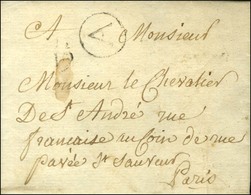 A Monsieur
V
Monsieur le Chevalier
De St André rue
françaisse au Coin de rue
pavée St Sauveur
Paris